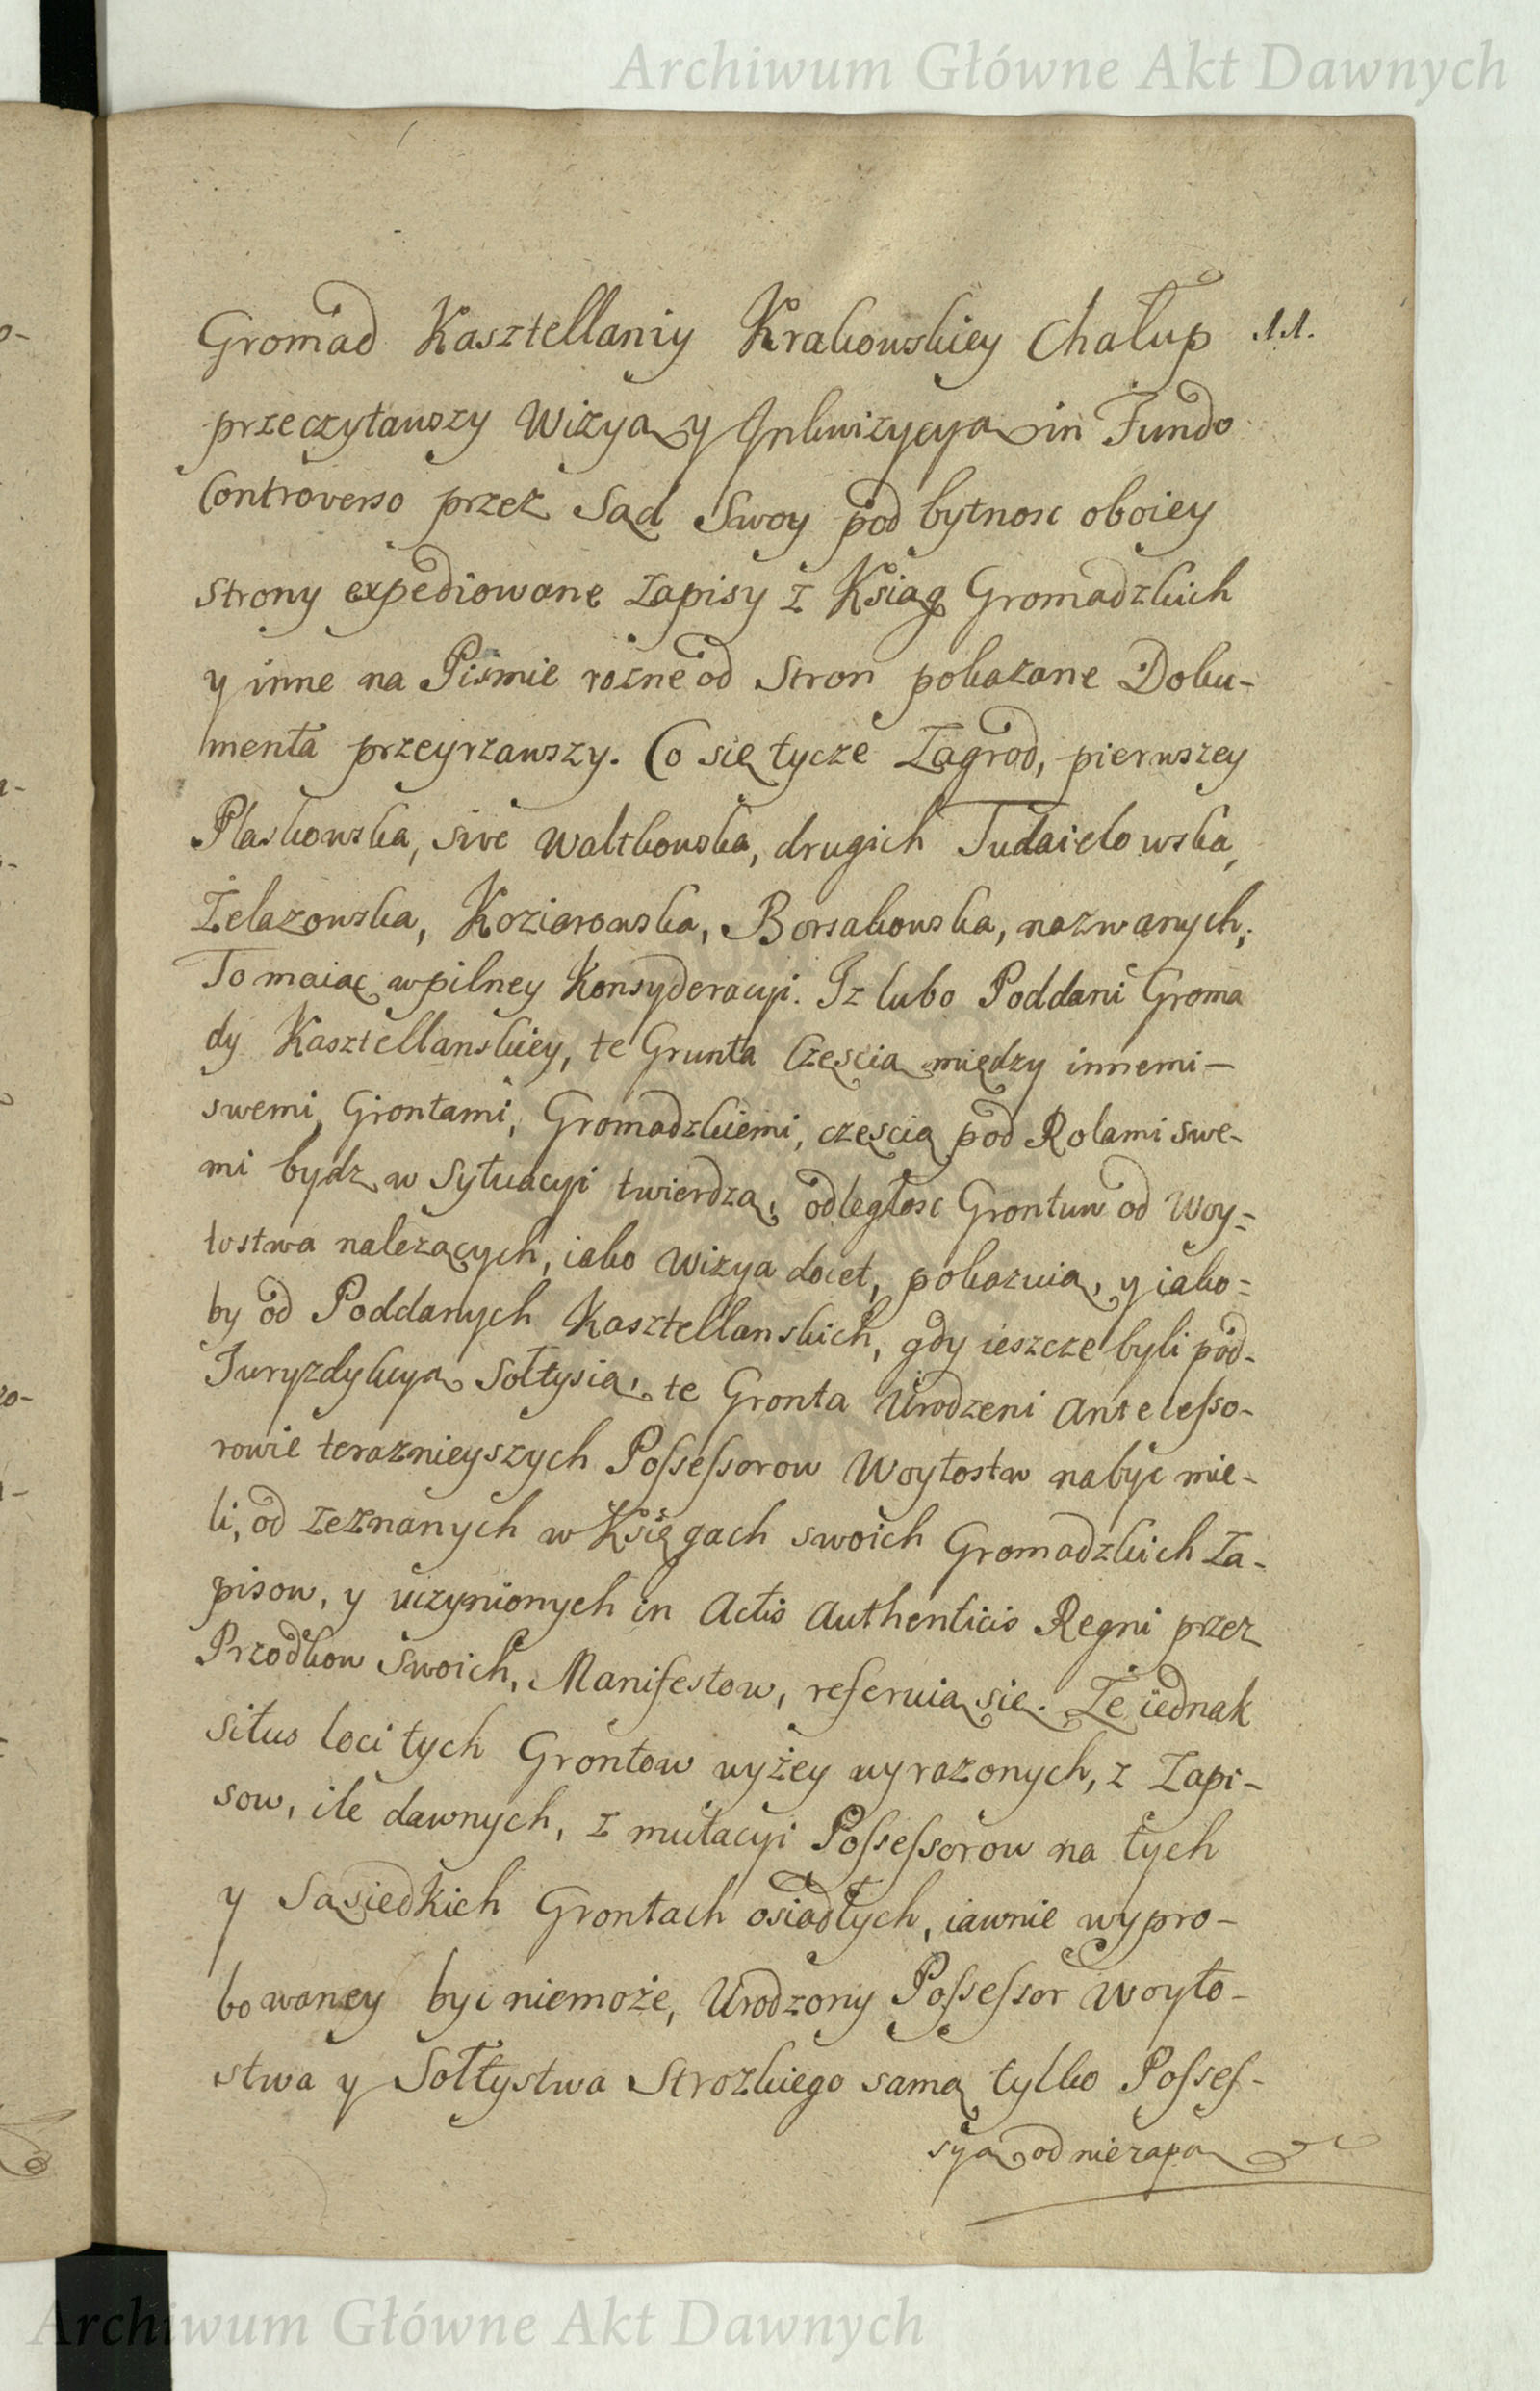 Archiwum Główne Akt Dawnych
Gromad Kasztellaniy Krakowskiey Chałup 11.
przeczytawszy Wizyą y Inkwizycyą in Fundo
Controverso przez Sąd Swoy pod bytnosc oboiey
strony expediowane Zapisy z Ksiąg Gromadzkich
y inne na Piśmie rozne od Stron pokazane Doku-
menta przeyrzawszy. Co się tycze Zagrod, pierwszey
Plaskowska, sive Waltkowska, drugich Tudaielowska,
Żelazowska, Koziarowska, Borsakowska, nazwanych;
To maiąc w pilney Konsyderacyi. Iz lubo Poddani Groma
dy Kasztellanskiey, te Grunta Częscią między innemi –
swemi, Grontami, Gromadzkiemi, częscią pod Rolami swe-
mi bydz w Sytuacyi twierdzą, odległosc Grontuw od Woy=
tostwa nalezących, iako Wizya docet, pokazuią, y iako=
by od Poddanych Kasztellanskich, gdy ieszcze byli pod-
Juryzdykcyą Sołtysią, te Gronta Urodzeni Antecesso-
rowie teraznieyszych Possessorow Woytostw nabyc mie-
li, od zeznanych w Księgach swoich Gromadzkich Za-
pisow, y uczynionych in Actis Authenticis Regni przez
Przodkow Swoich, Manifestow, referuią się. Że iednak
situs loci tych Grontow wyżey wyrazonych, z Zapi-
sow, ile dawnych, z mutacyi Possessorow na tych
y Sąsiedkich Grontach osiadłych, iawnie wypro-
bowaney byc niemoże, Urodzony Possessor Woyto-
stwa y Sołtystwa Strozkiego samą tylko Posses-
syą od niezapa
Archiwum Główne Akt Dawnych